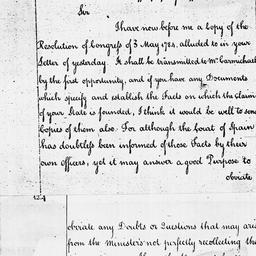 Sir
I have now before me a Copy of the
Resolution of Congress of 3 May 1784, alluded to in your
Letter of yesterday. It shall be transmitted to Mr Carmichael
by the first opportunity, and if you have any Documents
which specify and establish the Facts on which the claim
of your State is founded, I think it would be well to send
Copies of them also. For although the Court of Spain
has doubtless been informed of those Facts by their
own officers, yet it may answer a good Purpose to
obviate
obviate any Doubts or Questions that may aris
from the Ministers not perfectly recollecting the